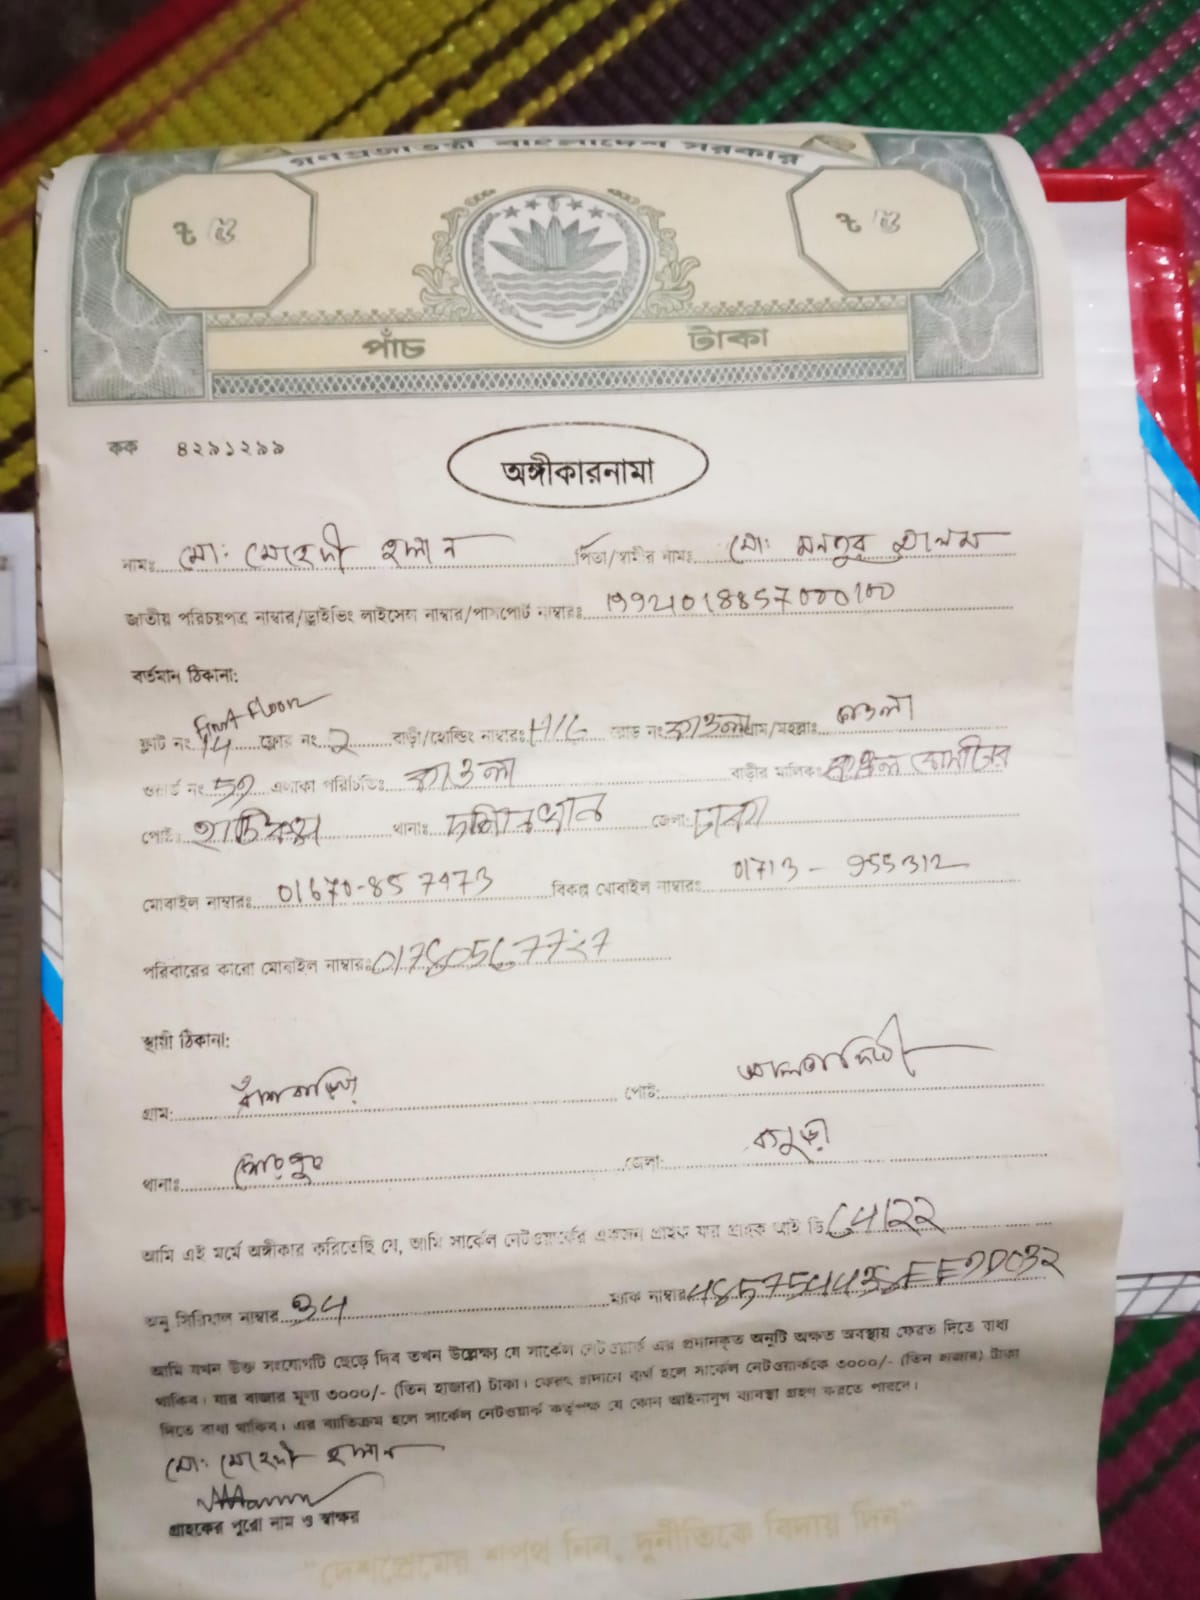 গণপ্রজাতন্ত্রী বাংলাদেশ সরকার
৳ ৫ ৳ ৫
পাঁচ টাকা
কক ৪২৯১২৯৯
অঙ্গীকারনামা
নামঃ মো: মেহেদী হাসান পিতা/স্বামীর নামঃ মো:
জাতীয় পরিচয়পত্র নাম্বার/ড্রাইভিং লাইসেন্স নাম্বার/পাসপোর্ট নাম্বারঃ 19921018857000100
বর্তমান ঠিকানা:
First Floor
ফ্লাট নং 14 ফ্লোর নং 2 বাড়ী/হোল্ডিং নাম্বারঃ রোড নং কাওলা গ্রাম/মহল্লাঃ কাওলা
ওয়ার্ড নং এলাকা পরিচিতিঃ কাওলা বাড়ীর মালিকঃ
পোষ্ট: থানাঃ দক্ষিনখান জেলা: ঢাকা
মোবাইল নাম্বারঃ 01670-857473 বিকল্প মোবাইল নাম্বারঃ 01713-955312
পরিবারের কারো মোবাইল নাম্বারঃ 01780567727
স্থায়ী ঠিকানা:
গ্রাম: বাঁশবাড়িয়া পোষ্ট:
থানাঃ শেরপুর জেলা: বগুড়া
আমি এই মর্মে অঙ্গীকার করিতেছি যে, আমি সার্কেল নেটওয়ার্কের একজন গ্রাহক যার গ্রাহক আই ডি C4122
অনু সিরিয়াল নাম্বার 34 ম্যাক নাম্বার
আমি যখন উক্ত সংযোগটি ছেড়ে দিব তখন উল্লেক্ষ্য যে সার্কেল নেটওয়ার্ক এর প্রদানকৃত অনুটি অক্ষত অবস্থায় ফেরত দিতে বাধ্য
থাকিব। যার বাজার মূল্য ৩০০০/- (তিন হাজার) টাকা। ফেরৎ প্রদানে ব্যর্থ হলে সার্কেল নেটওয়ার্ককে ৩০০০/- (তিন হাজার) টাকা
দিতে বাধ্য থাকিব। এর ব্যতিক্রম হলে সার্কেল নেটওয়ার্ক কর্তৃপক্ষ যে কোন আইনানুগ ব্যবস্থা গ্রহণ করতে পারবে।
মো: মেহেদী হাসান
গ্রাহকের পুরো নাম ও স্বাক্ষর
"দেশপ্রেমের শপথ নিন, দুর্নীতিকে বিদায় দিন"